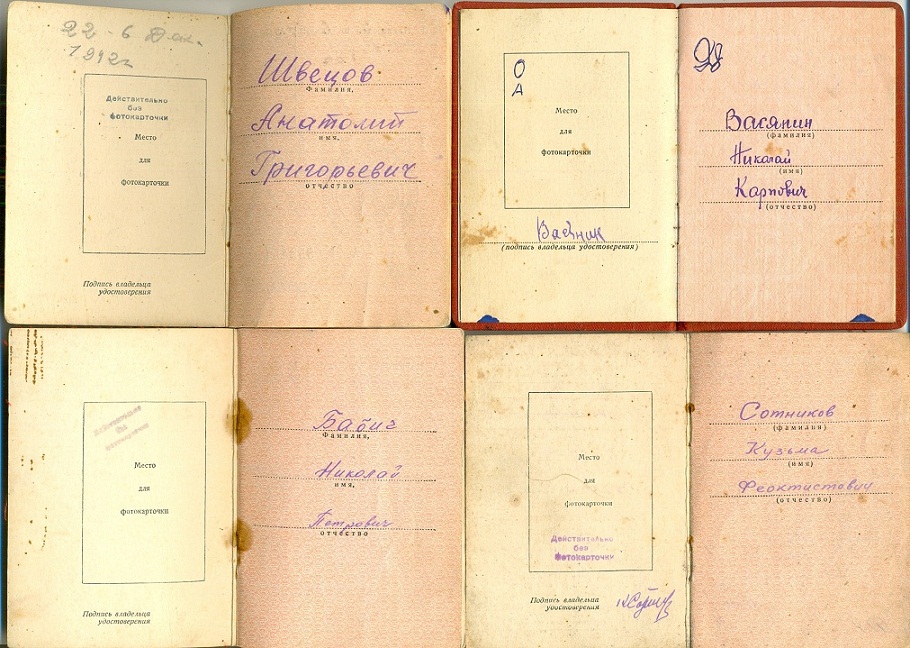 22 - 6
1942г
Действительно
без
фотокарточки
Место
для
фотокарточки
Подпись владельца
удостоверения
Швецов
Фамилия,
Анатолий
имя,
Григорьевич
отчество
О
А
Место
для
фотокарточки
(подпись владельца удостоверения)
Васянин
(фамилия)
Николай
(имя)
Карпович
(отчество)
Действительно
без
фотокарточки
Место
для
фотокарточки
Подпись владельца
удостоверения
Фамилия,
Николай
имя,
Петрович
отчество
Место
для
фотокарточки
Действительно
без
фотокарточки
Подпись владельца
удостоверения
Сотников
(фамилия)
Кузьма
(имя)
Феоктистович
(отчество)